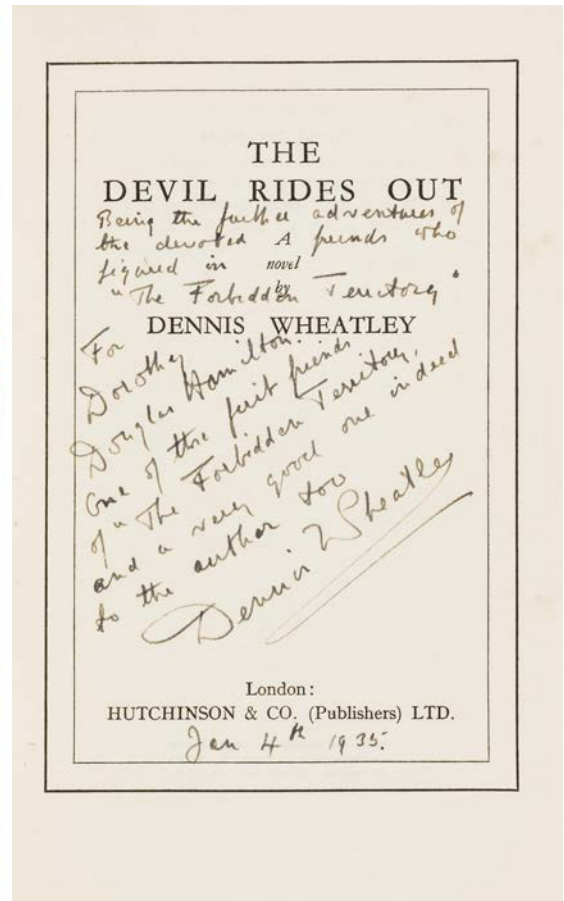 THE
DEVIL RIDES OUT
Being the further adventures of
the devoted friends who
A
figured in
novel
"The Forbidden Territory"
by
DENNIS WHEATLEY
For
Dorothy
Douglas Hamilton.
One of the first friends
of "The Forbidden Territory,
and a very good one indeed
to the author too
Dennis Wheatley
London:
HUTCHINSON & CO. (Publishers) LTD.
Jan 4th 1935.